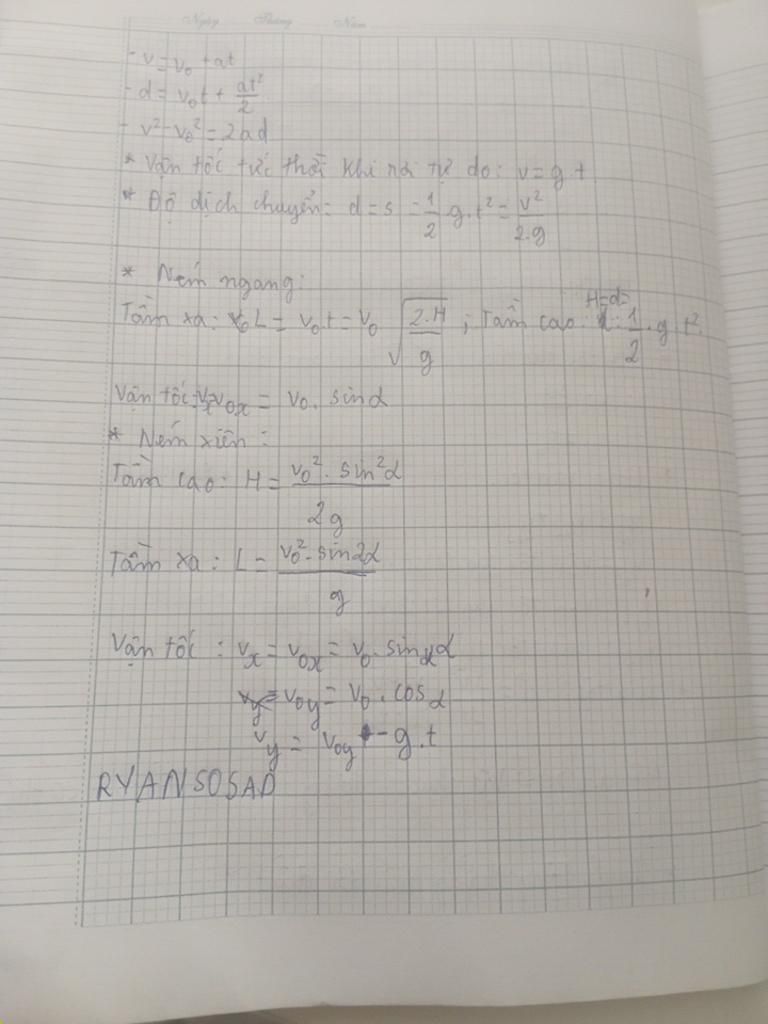 Ngày Tháng Năm
- v = v₀ + at
- d = v₀t + at²/2
- v² - v₀² = 2ad
* Vận tốc tức thời khi rơi tự do: v = g t
* Độ dịch chuyển: d = s = 1/2 g.t² = v²/2.g
* Ném ngang:
Tầm xa: L = v₀.t = v₀ √(2.H/g) ; Tầm cao: H=d= 1/2 . g t²
Vận tốc: vₓ=v₀ₓ = v₀. sinα
* Ném xiên:
Tầm cao: H = v₀². sin²α / 2g
Tầm xa: L = v₀². sin2α / g
Vận tốc: vₓ = v₀ₓ = v₀. sin α
v₀y = v₀ . cosα
vy = v₀y - g.t
RYANSOSAD